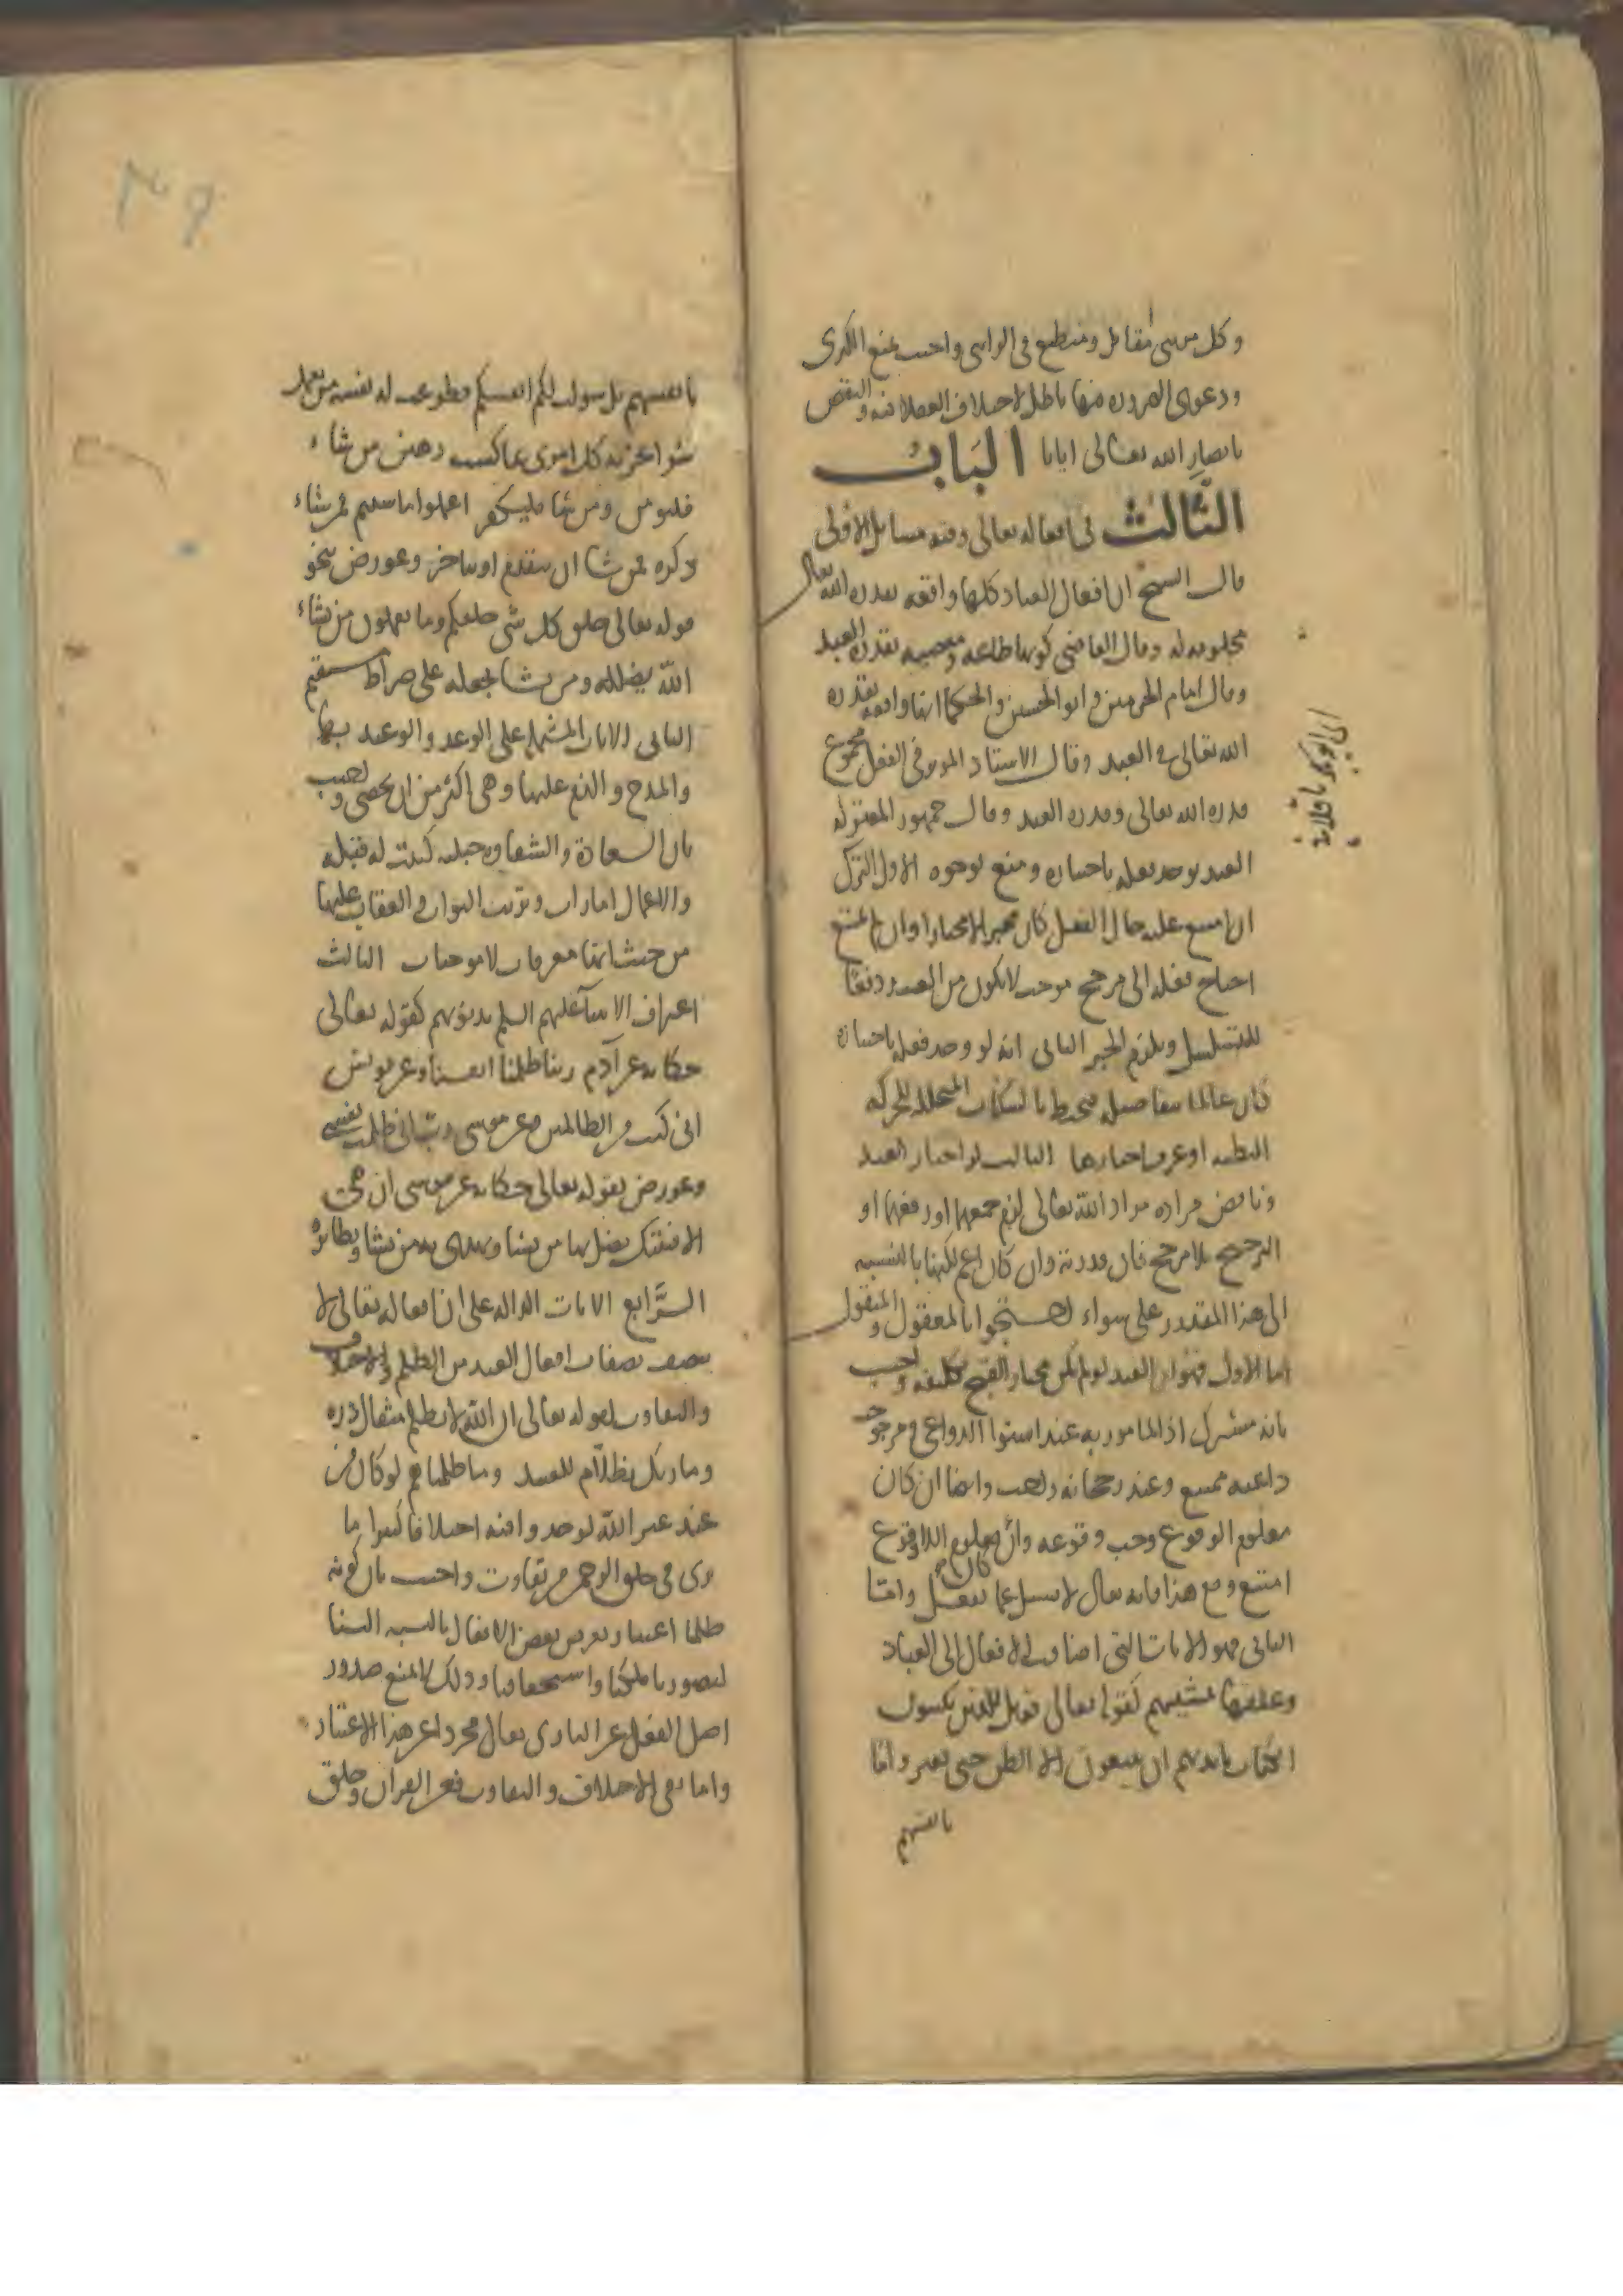 وكل مرئى مقابل ومنطبع فى الرائى واجيب بمنع الكبرى
ودعوى الضرورة فيها باطل لاختلاف العقلا فيه والنقض
بابصار الله تعالى ايانا الباب
الثالث فى افعاله تعالى وفيه مسائل الاولى
قال الشيخ ان افعال العباد كلها واقعة بقدرة الله تعالى
مخلوقة له وقال القاضى كونها طاعة ومعصية بقدرة العبد
وقال امام الحرمين وابو الحسين والحكما انها واقعة بقدرة
الله تعالى فى العبد وقال الاستاد الموثر فى الفعل مجموع
قدرة الله تعالى وقدرة العبد وقال جمهور المعتزله
العبد يوجد فعله باختياره ومنع لوجوه الاول الترك
ان امتنع عليه حال الفعل كان مجبرا لا مختارا وان لم يمتنع
احتاج فعله الى مرجح موجب لا يكون من العبد دفعا
للتسلسل ويلزم الجبر الثانى انه لو وجد فعله باختياره
كان عالما بتفاصيله فيحيط بالسكنات المتخللة للحركة
البطيه او عرف احيازها الثالث لو اختار العبد
وناقض مراده مراد الله تعالى لزم جمعهما او رفعهما او
الترجيح بلا مرجح فان قدرته وان كان اعم لكنها بالنسبه
الى هذا المقدور على سواء احتجوا بالمعقول والمنقول
اما الاول فهو ان العبد لو لم يكن مختارا لقبح تكليفه واجيب
بانه مشترك اذ المامور به عند استوا الدواعى ومرجوحية
داعيه ممتنع وعند رجحانه واجب وايضا ان كان
معلوم الوقوع وجب وقوعه وان كان معلوم اللاوقوع
امتنع ومع هذا فانه تعالى لا يسئل عما يفعل واما
الثانى فهو الايات التى اضافت الافعال الى العباد
وعلقها بمشيتهم كقوله تعالى فويل للذين يكتبون
الكتاب بايديهم ان يتبعون الا الظن حتى يغيروا ما
بانفسهم
اى ابو بكر باقلانى
بانفسهم بل سولت لكم انفسكم فطوعت له نفسه من يعمل
سوا يجز به كل امرئ بما كسب رهين من شاء
فليومن ومن شا فليكفر اعملوا ما شيتم فمن شاء
ذكره لمن شا ان يتقدم او يتاخر وعورض بنحو
قوله تعالى خلق كل شى خلقكم وما تعملون من يشاء
الله يضلله ومن يشا يجعله على صراط مستقيم
الثانى الايات المشتملة على الوعد والوعيد بها
والمدح والذم عليها وهى اكثر من ان يحصى واجيب
بان السعادة والشقاوة جبلية كتبت له قبله
والاعمال امارات وترتب الثواب والعقاب عليها
من حيث انها معرفات لا موجبات الثالث
اعتراف الانبيآ عليهم السلم بذنوبهم كقوله تعالى
حكاية عن آدم ربنا ظلمنا انفسنا وعن يونس
انى كنت من الظالمين وعن موسى رب انى ظلمت نفسى
وعورض بقوله تعالى حكاية عن موسى ان هى
الا فتنتك تضل بها من يشا وتهدى به من تشا ونظائره
الرَّابع الايات الداله على ان افعاله تعالى لا
يتصف بصفات افعال العبد من الظلم والاختلاف
والتفاوت لقوله تعالى ان الله لا يظلم مثقال ذره
وما ربك بظلّام للعبيد وما ظلمناهم لو كان من
عند غير الله لوجدوا فيه اختلافا كثيرا ما
ترى فى خلق الرحمن من تفاوت واجيب بان كونه
ظلما اعتبار يعرض بعض الافعال بالنسبه الينا
لقصور ملكنا واستحقاقنا وذلك لا يمنع صدور
اصل الفعل عن البارى تعالى مجردا عن هذا الاعتبار
واما نفى الاختلاف والتفاوت فعن القران وخلق